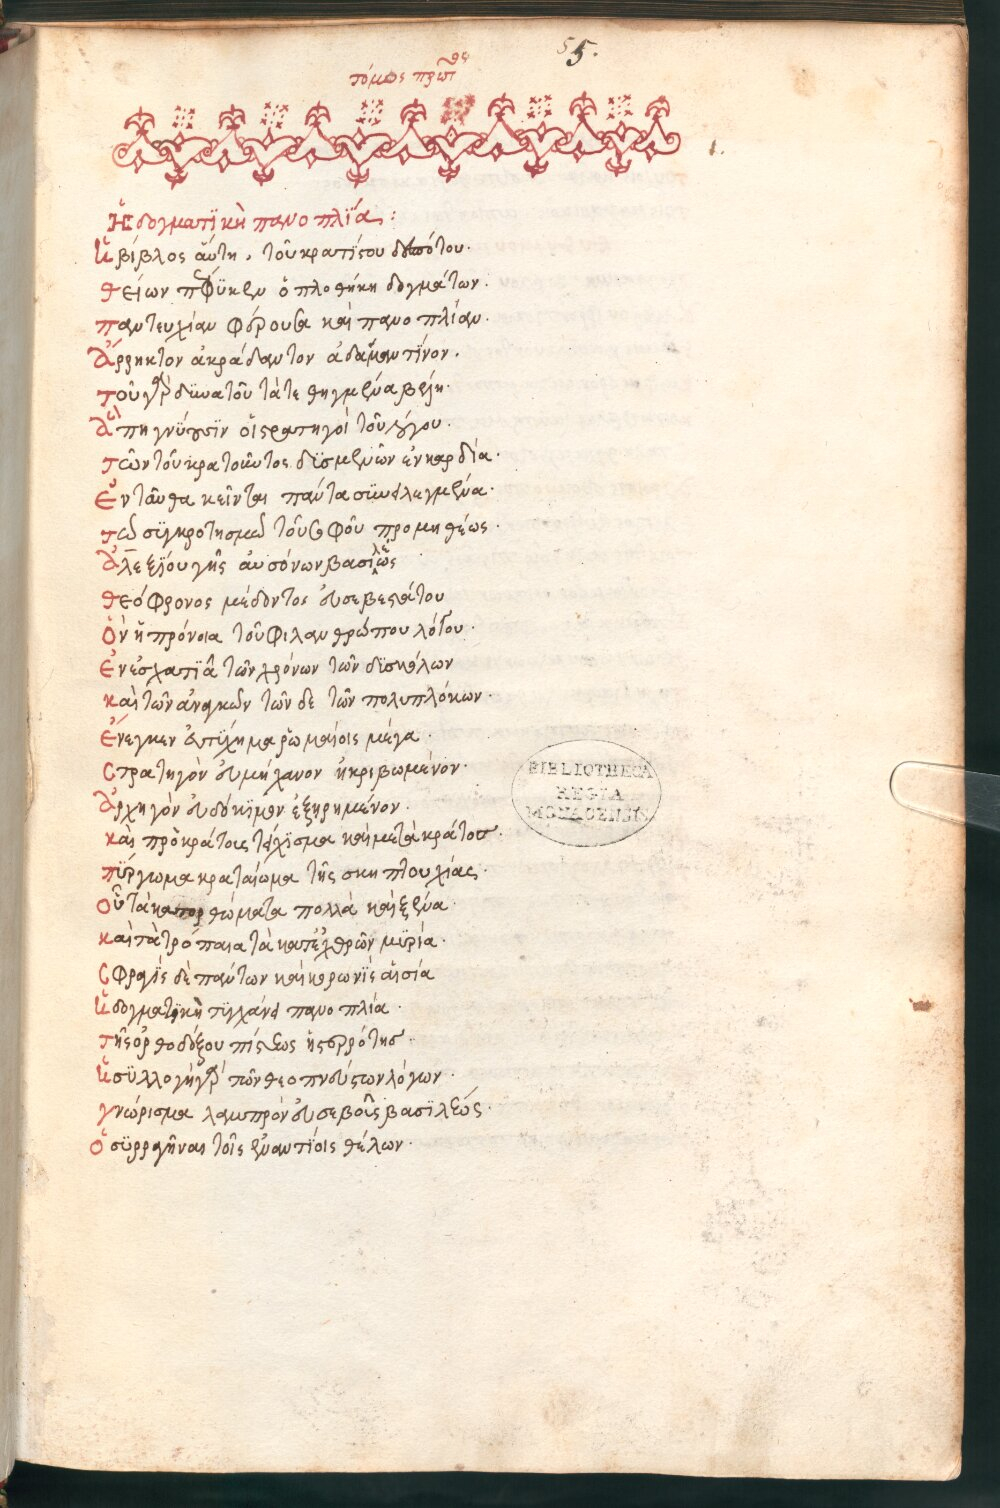 55.
τόμος πρῶτος
1.
Ἡ δογματϊκὴ πανοπλΐα :
Ἡ βίβλος αὕτη, τοῦ κρατίστου δεσπότου·
θείων πέφϋκεν ὁπλοθήκη δογμάτων·
παντευχίαν φέρουσα καὶ πανοπλίαν·
Ἄρρηκτον ἀκράδαντον ἀδαμαντίνον·
τοῦ γὰρ δϋνατοῦ τά τε θηγμένα βέλη·
πηγνύουσϊν οἱ στρατηγοὶ τοῦ λόγου·
τῶν τοῦ κρατοῦντος δϋσμενῶν ἐν καρδία·
Ἐνταῦθα κεῖνται πάντα σϋνειλεγμένα·
τῶ σϋγκροτησμῶ τοῦ σοφοῦ προμηθέως·
Ἀλεξΐου γῆς αὐσόνων βασιλέως
θεόφρονος μέδοντος εὐσεβεστάτου
Ὃν ἡ πρόνοια τοῦ φιλανθρώπου λόγου·
Ἐν ἐσχατϊᾶ τῶν χρόνων τῶν δϋσκόλων
καὶ τῶν ἀναγκῶν τῶν δε τῶν πολυπλόκων·
Ἐνεγκεν εὐτύχημα ῥωμαίοις μέγα·
Στρατηγὸν εὐμήχανον ἠκριβωμένον·
Ἀρχηγὸν εὐδόκϊμον ἐξηρημένον·
καὶ πρὸ κράτους τείχϊσμα καὶ μετὰ κράτος·
πϋργωμα κραταίωμα τῆς σκηπτουχίας·
Οὗ τὰ κατορθώματα πολλὰ καὶ ξένα·
καὶ τὰ τρόπαια τὰ κατ' ἐχθρῶν μϋρία·
Σφραγὶς δὲ πάντων καὶ κορωνὶς αἰσία
Ἡ δογματϊκὴ τϋγχάνει πανοπλία·
τῆς ὀρθοδόξου πίστεως ἡ στερρότης·
Ἡ σϋλλογὴ γὰρ τῶν θεοπνεύστων λόγων·
γνώρισμα λαμπρὸν εὐσεβοῦς βασϊλέως·
Ὁ σϋρραγῆναι τοῖς ἐναντΐοις θέλων·
BIBLIOTHECA
REGIA
MONACENSIS